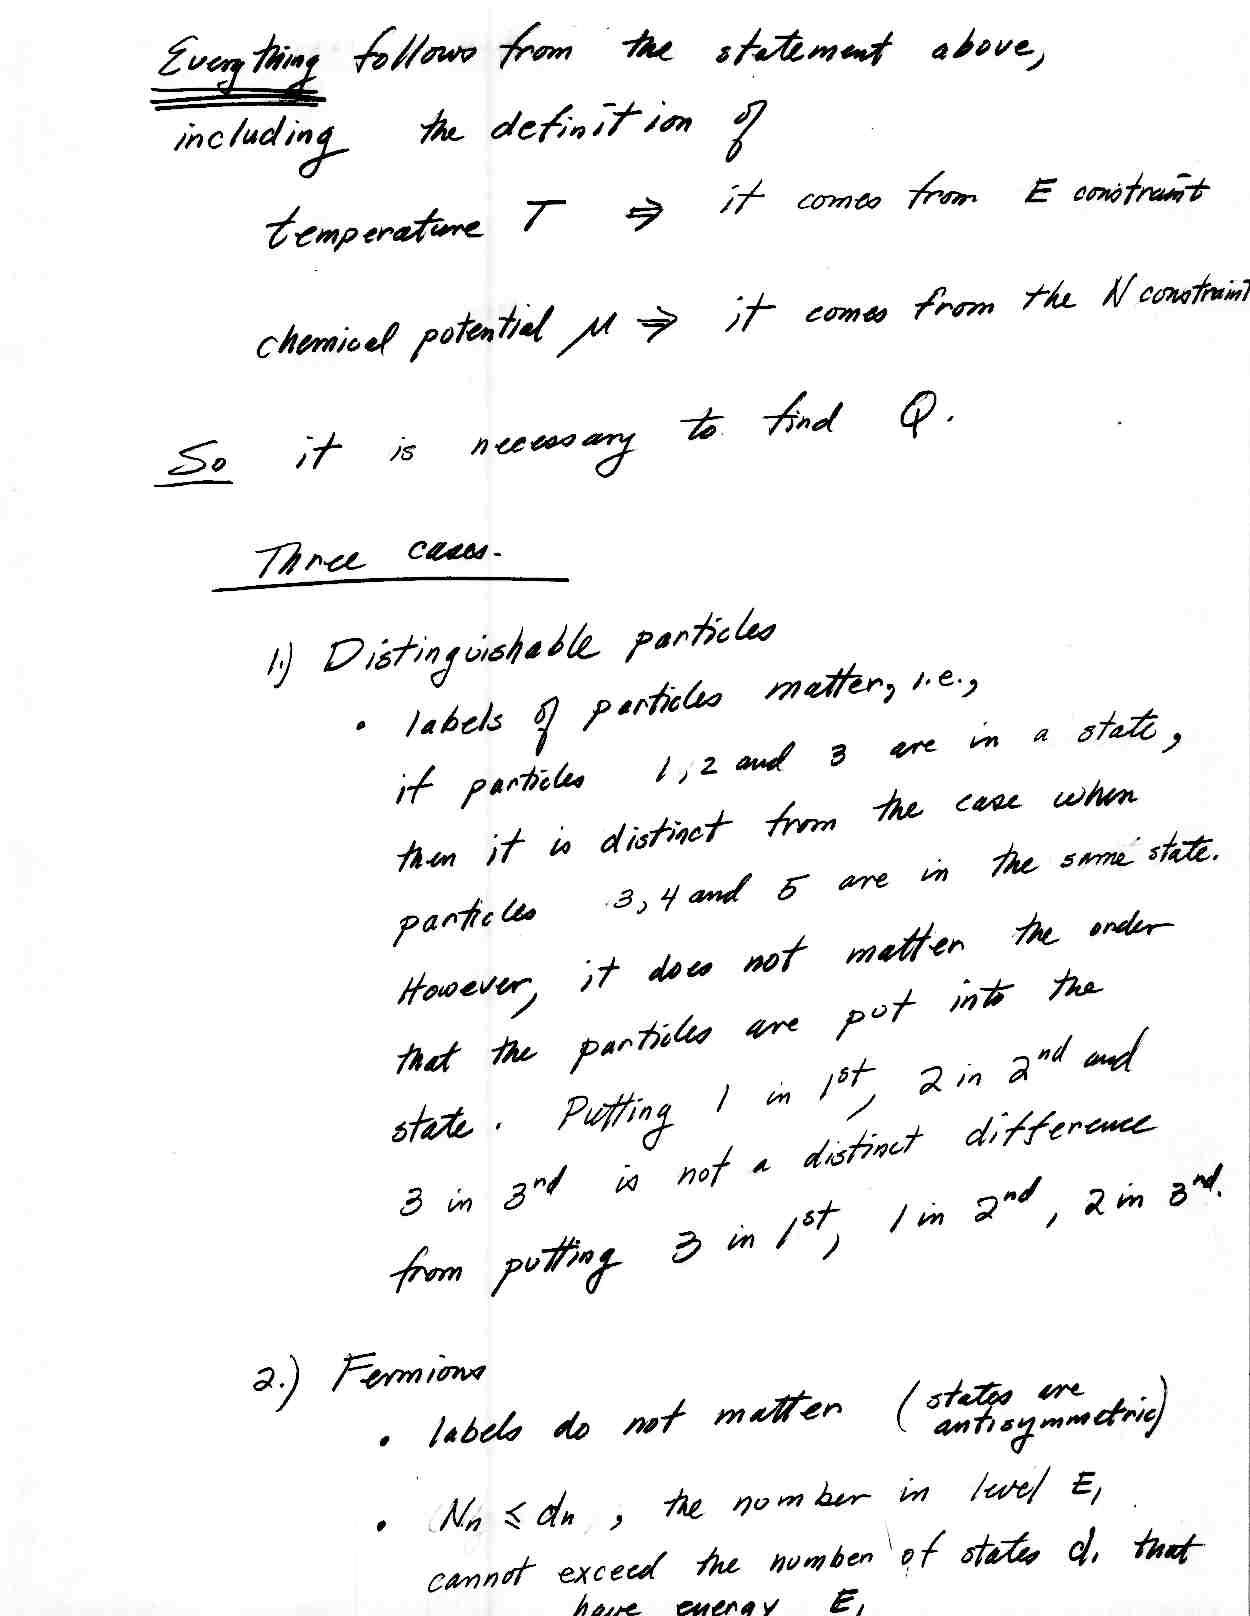 Everything follows from the statement above,
including the definition of
temperature T ⇒ it comes from E constraint
chemical potential μ ⇒ it comes from the N constraint
So it is necessary to find Q.
Three cases.
1.) Distinguishable particles
• labels of particles matter, i.e.,
if particles 1, 2 and 3 are in a state,
then it is distinct from the case when
particles 3, 4 and 5 are in the same state.
However, it does not matter the order
that the particles are put into the
state. Putting 1 in 1st, 2 in 2nd and
3 in 3nd is not a distinct difference
from putting 3 in 1st, 1 in 2nd, 2 in 3nd.
2.) Fermions
• labels do not matter (states are
antisymmetric)
• Nn ≤ dn, the number in level E1
cannot exceed the number of states d1 that
have energy E1